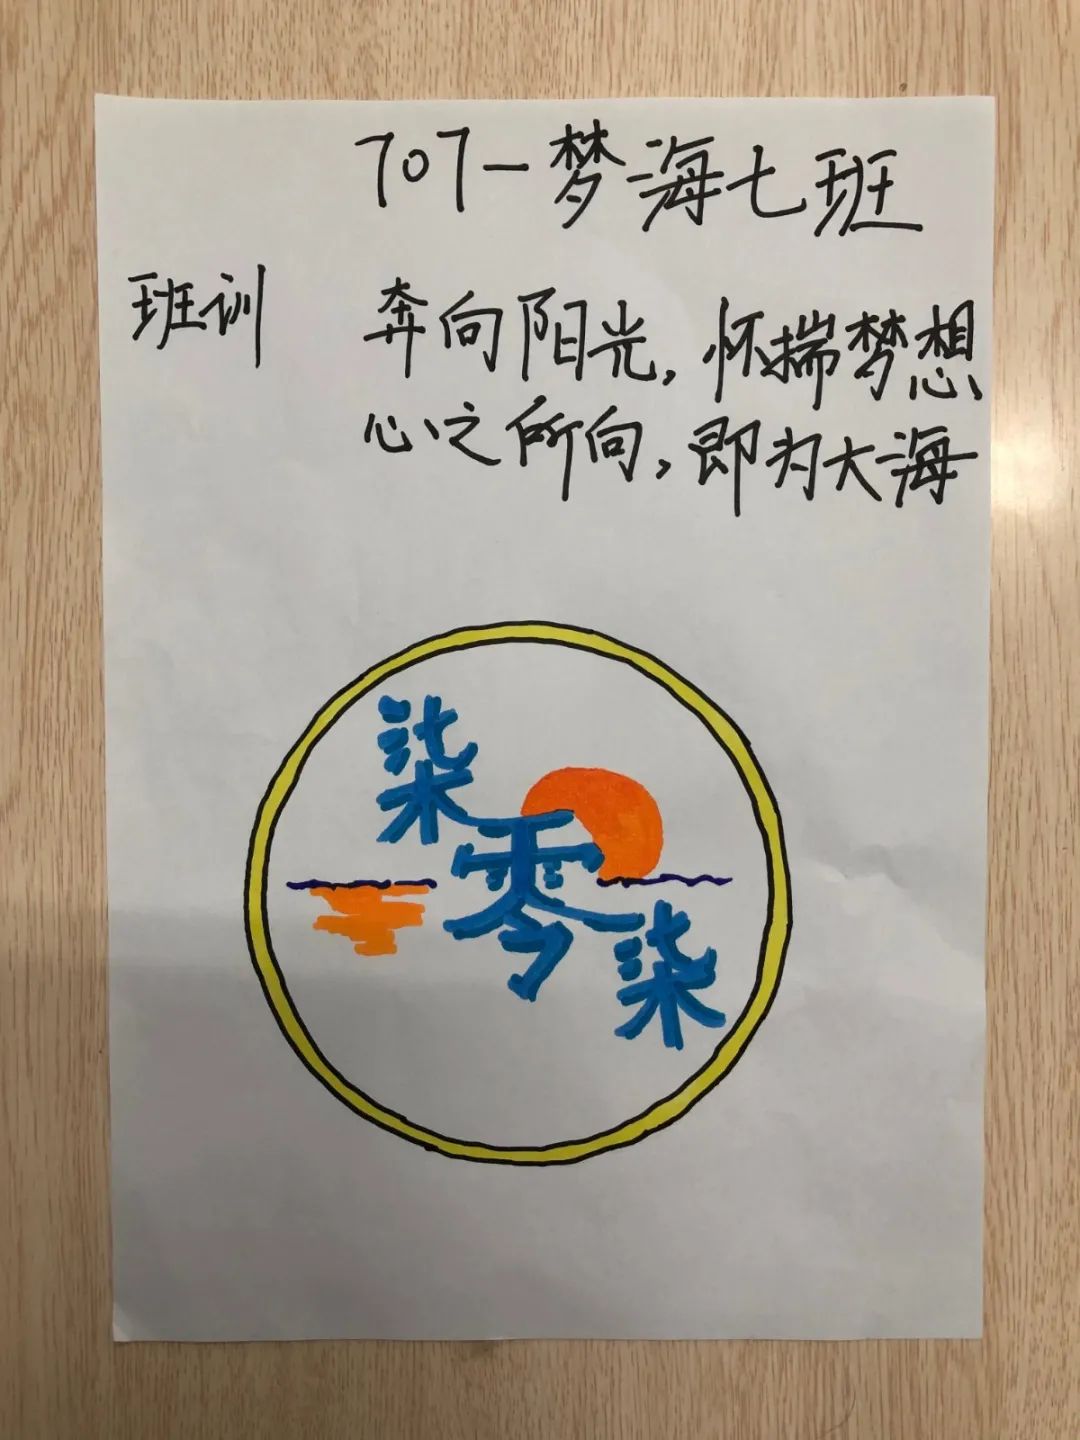 707一梦海七班
班训 奔向阳光,怀揣梦想
心之所向,即为大海
柒
零
柒